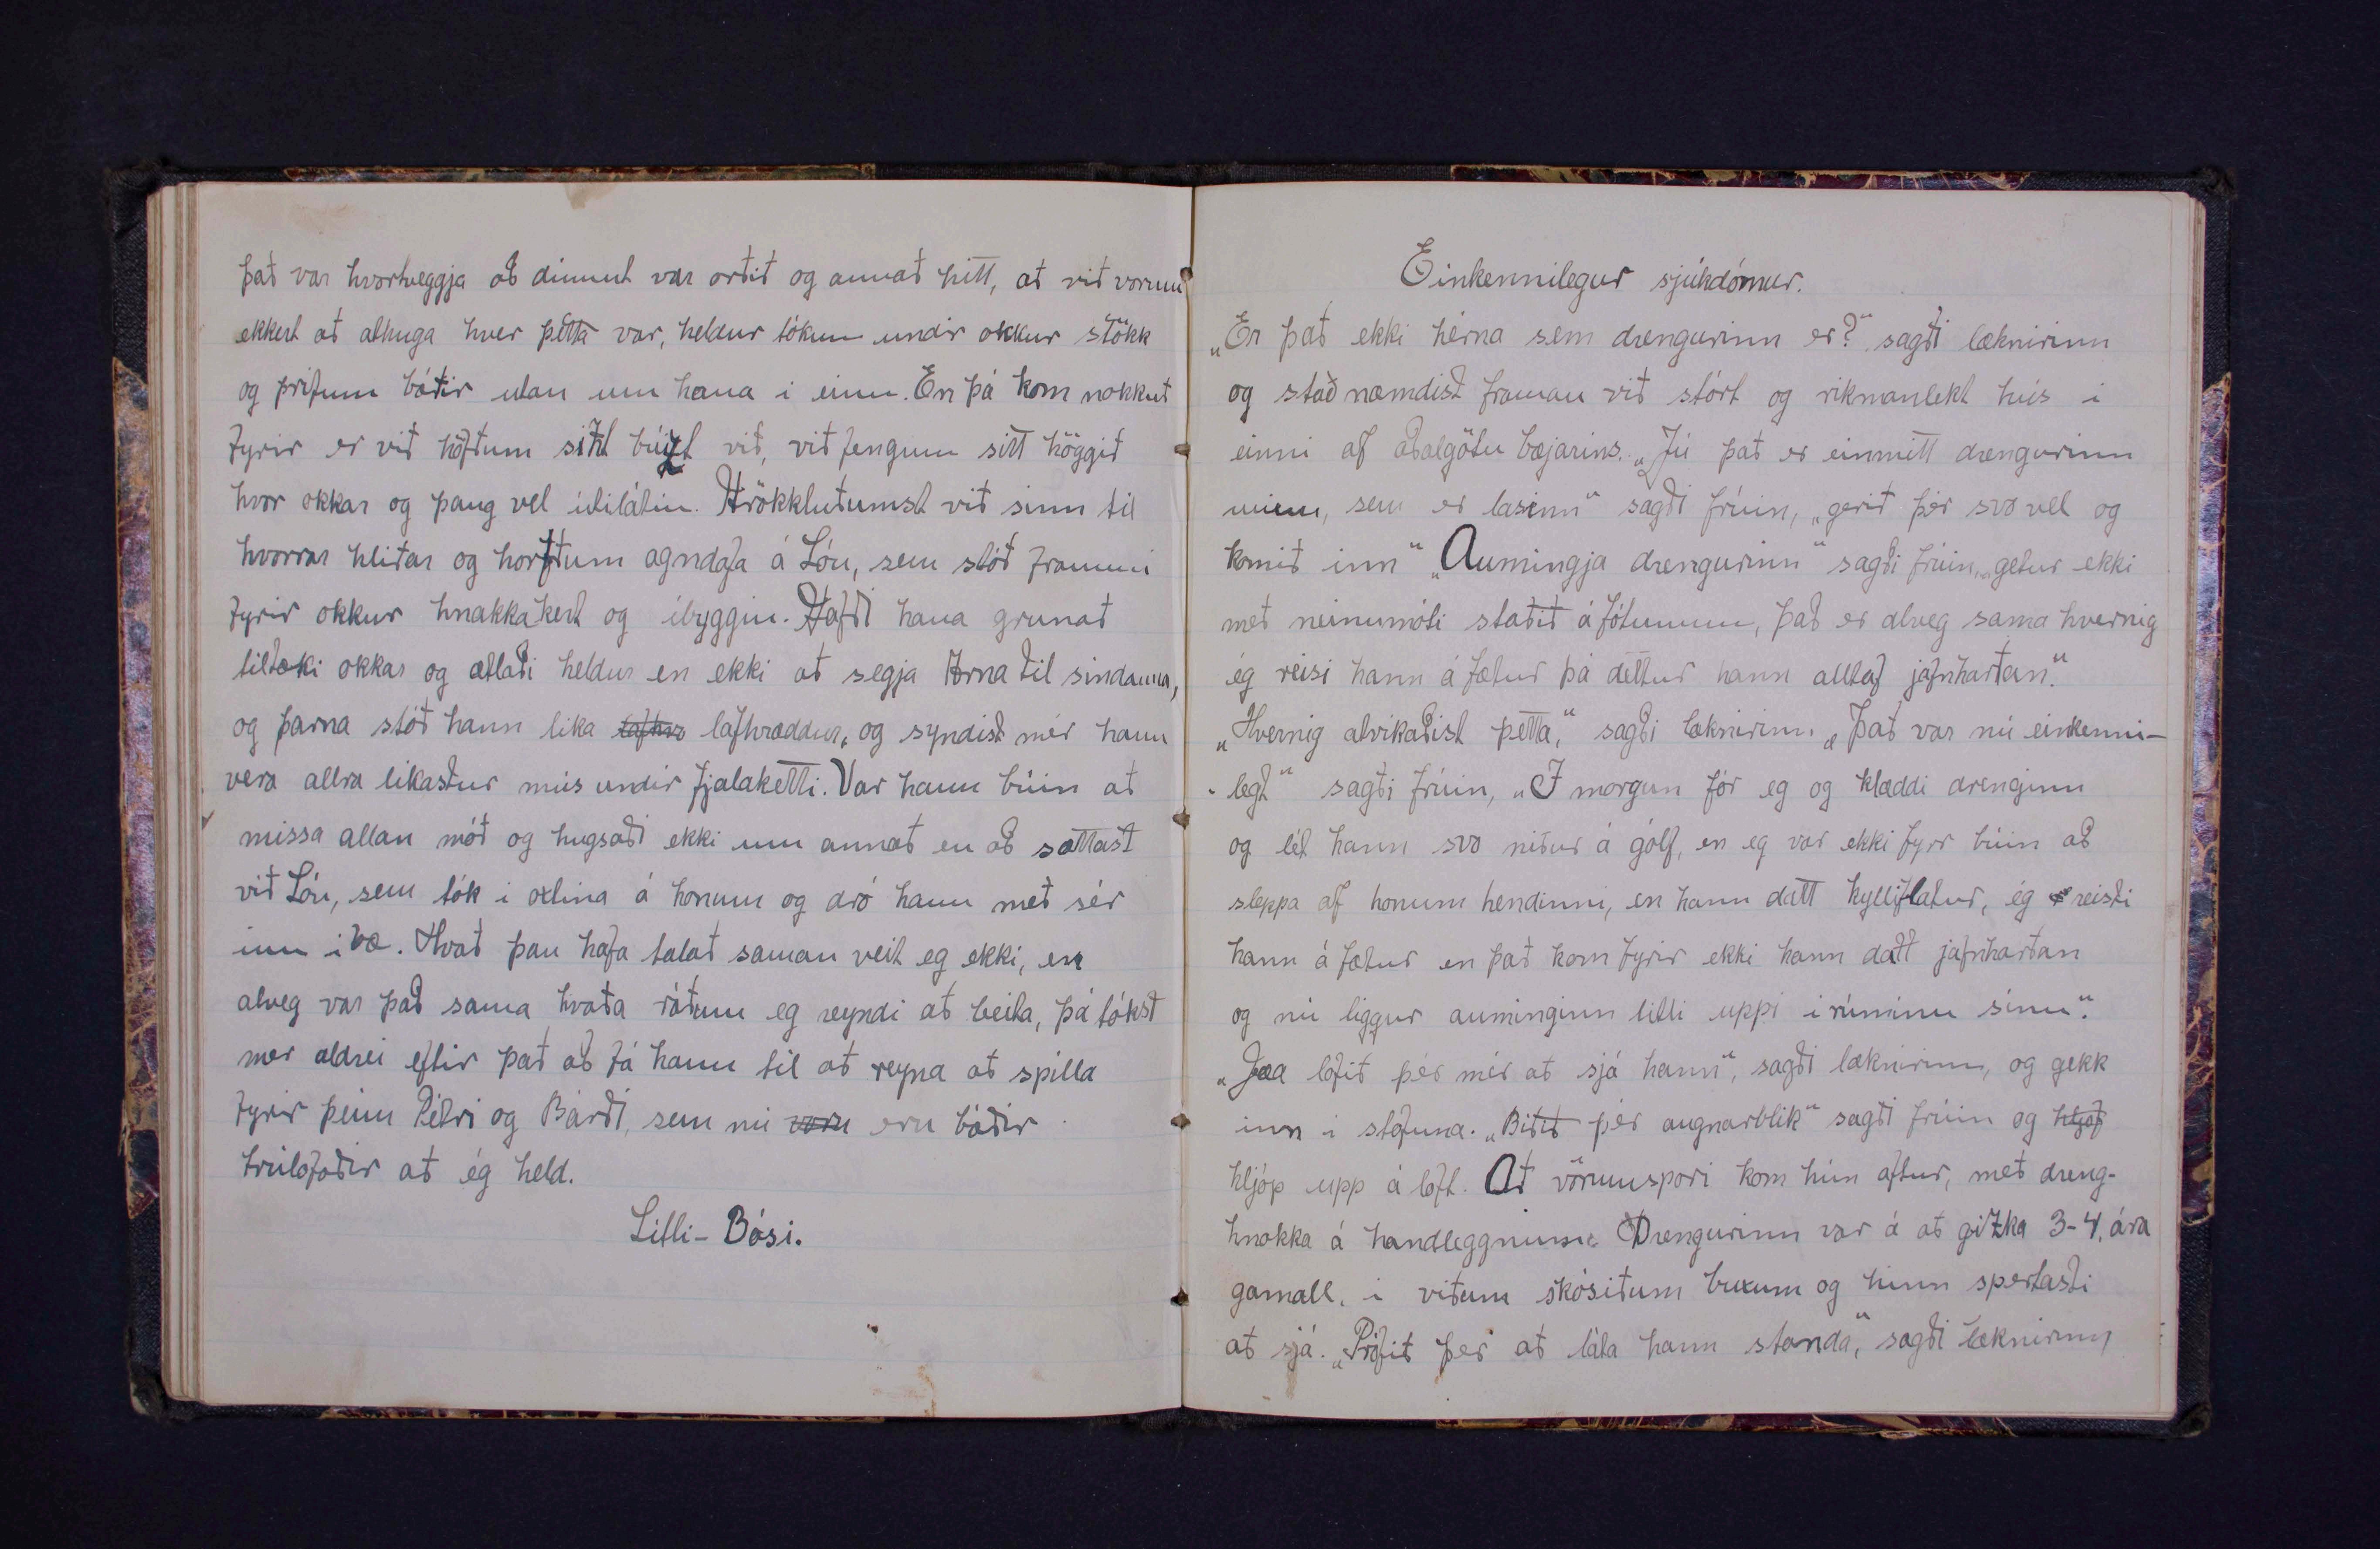 það var hvortveggja að dimmt var orðið og annað hitt, að við vorum
ekkert að athuga hver þetta var, heldur tókum undir okkur stökk
og þrifum báðir utan um hana í einu. En þá kom nokkuð
fyrir er við höfðum sízt búizt við, við fengum sitt höggið
hvor okkar og þaug vel útilátin. Hrökkluðumst við sinn til
hvorrar hliðar og horfðum agndofa á Lóu, sem stóð frammi
fyrir okkur hnakkakert og íbyggin. Hafði hana grunað
tiltæki okkar og ætlaði heldur en ekki að segja Árna til sindanna,
og þarna stóð hann líka lafhræ lafhræddur, og syndist mér hann
vera allra líkastur mús undir fjalaketti. Var hann búin að
missa allan móð og hugsaði ekki um annað en að sættast
við Lóu, sem tók í öxlina á honum og dró hann með sér
inn í bæ. Hvað þau hafa talað saman veit eg ekki, en
alveg var það sama hvaða ráðum eg reyndi að beita, þá tókst
mer aldrei eftir það að fá hann til að reyna að spilla
fyrir þeim Pétri og Bárði, sem nú voru eru báðir
trúlofaðir að ég held.
Litli-Bósi.
Einkennilegur sjúkdómur.
„Er það ekki hérna sem drengurinn er?" sagði læknirinn
og staðnæmdist framan við stórt og rikmanlekt hús í
einni af aðalgötu bæjarins. „Jú það er einmitt drengurinn
minn, sem er lasinn" sagði frúin, „gerið þér svo vel og
komið inn" „Aumingja drengurinn" sagði frúin, „getur ekki
með neinumóti staðið á fótunum, það er alveg sama hvernig
ég reisi hann á fætur þá dettur hann alltaf jafnharðan."
„Hvernig atvikaðist þetta," sagði læknirinn. „Það var nú einkenni-
-legt" sagði frúin, „Í morgun fór eg og klæddi drenginn
og lét hann svo niður á gólf, en eg var ekki fyrr búin að
sleppa af honum hendinni, en hann datt kylliflatur, ég reisti
hann á fætur en það kom fyrir ekki hann datt jafnharðan
og nú liggur auminginn litli uppi í rúminu sínu".
„Jæa lofið þér mér að sjá hann", sagði læknirinn, og gekk
inn í stofuna. „Bíðið þér augnarblik" sagði frúin og hljóp
hljóp upp á loft. Að vörmuspori kom hún aftur, með dreng-
hnokka á handleggnum. Drengurinn var á að gizka 3-4, ára
gamall, í viðum skósiðum buxum og hinn spertasti
að sjá. „Prófið þér að láta hann standa," sagði læknirinn